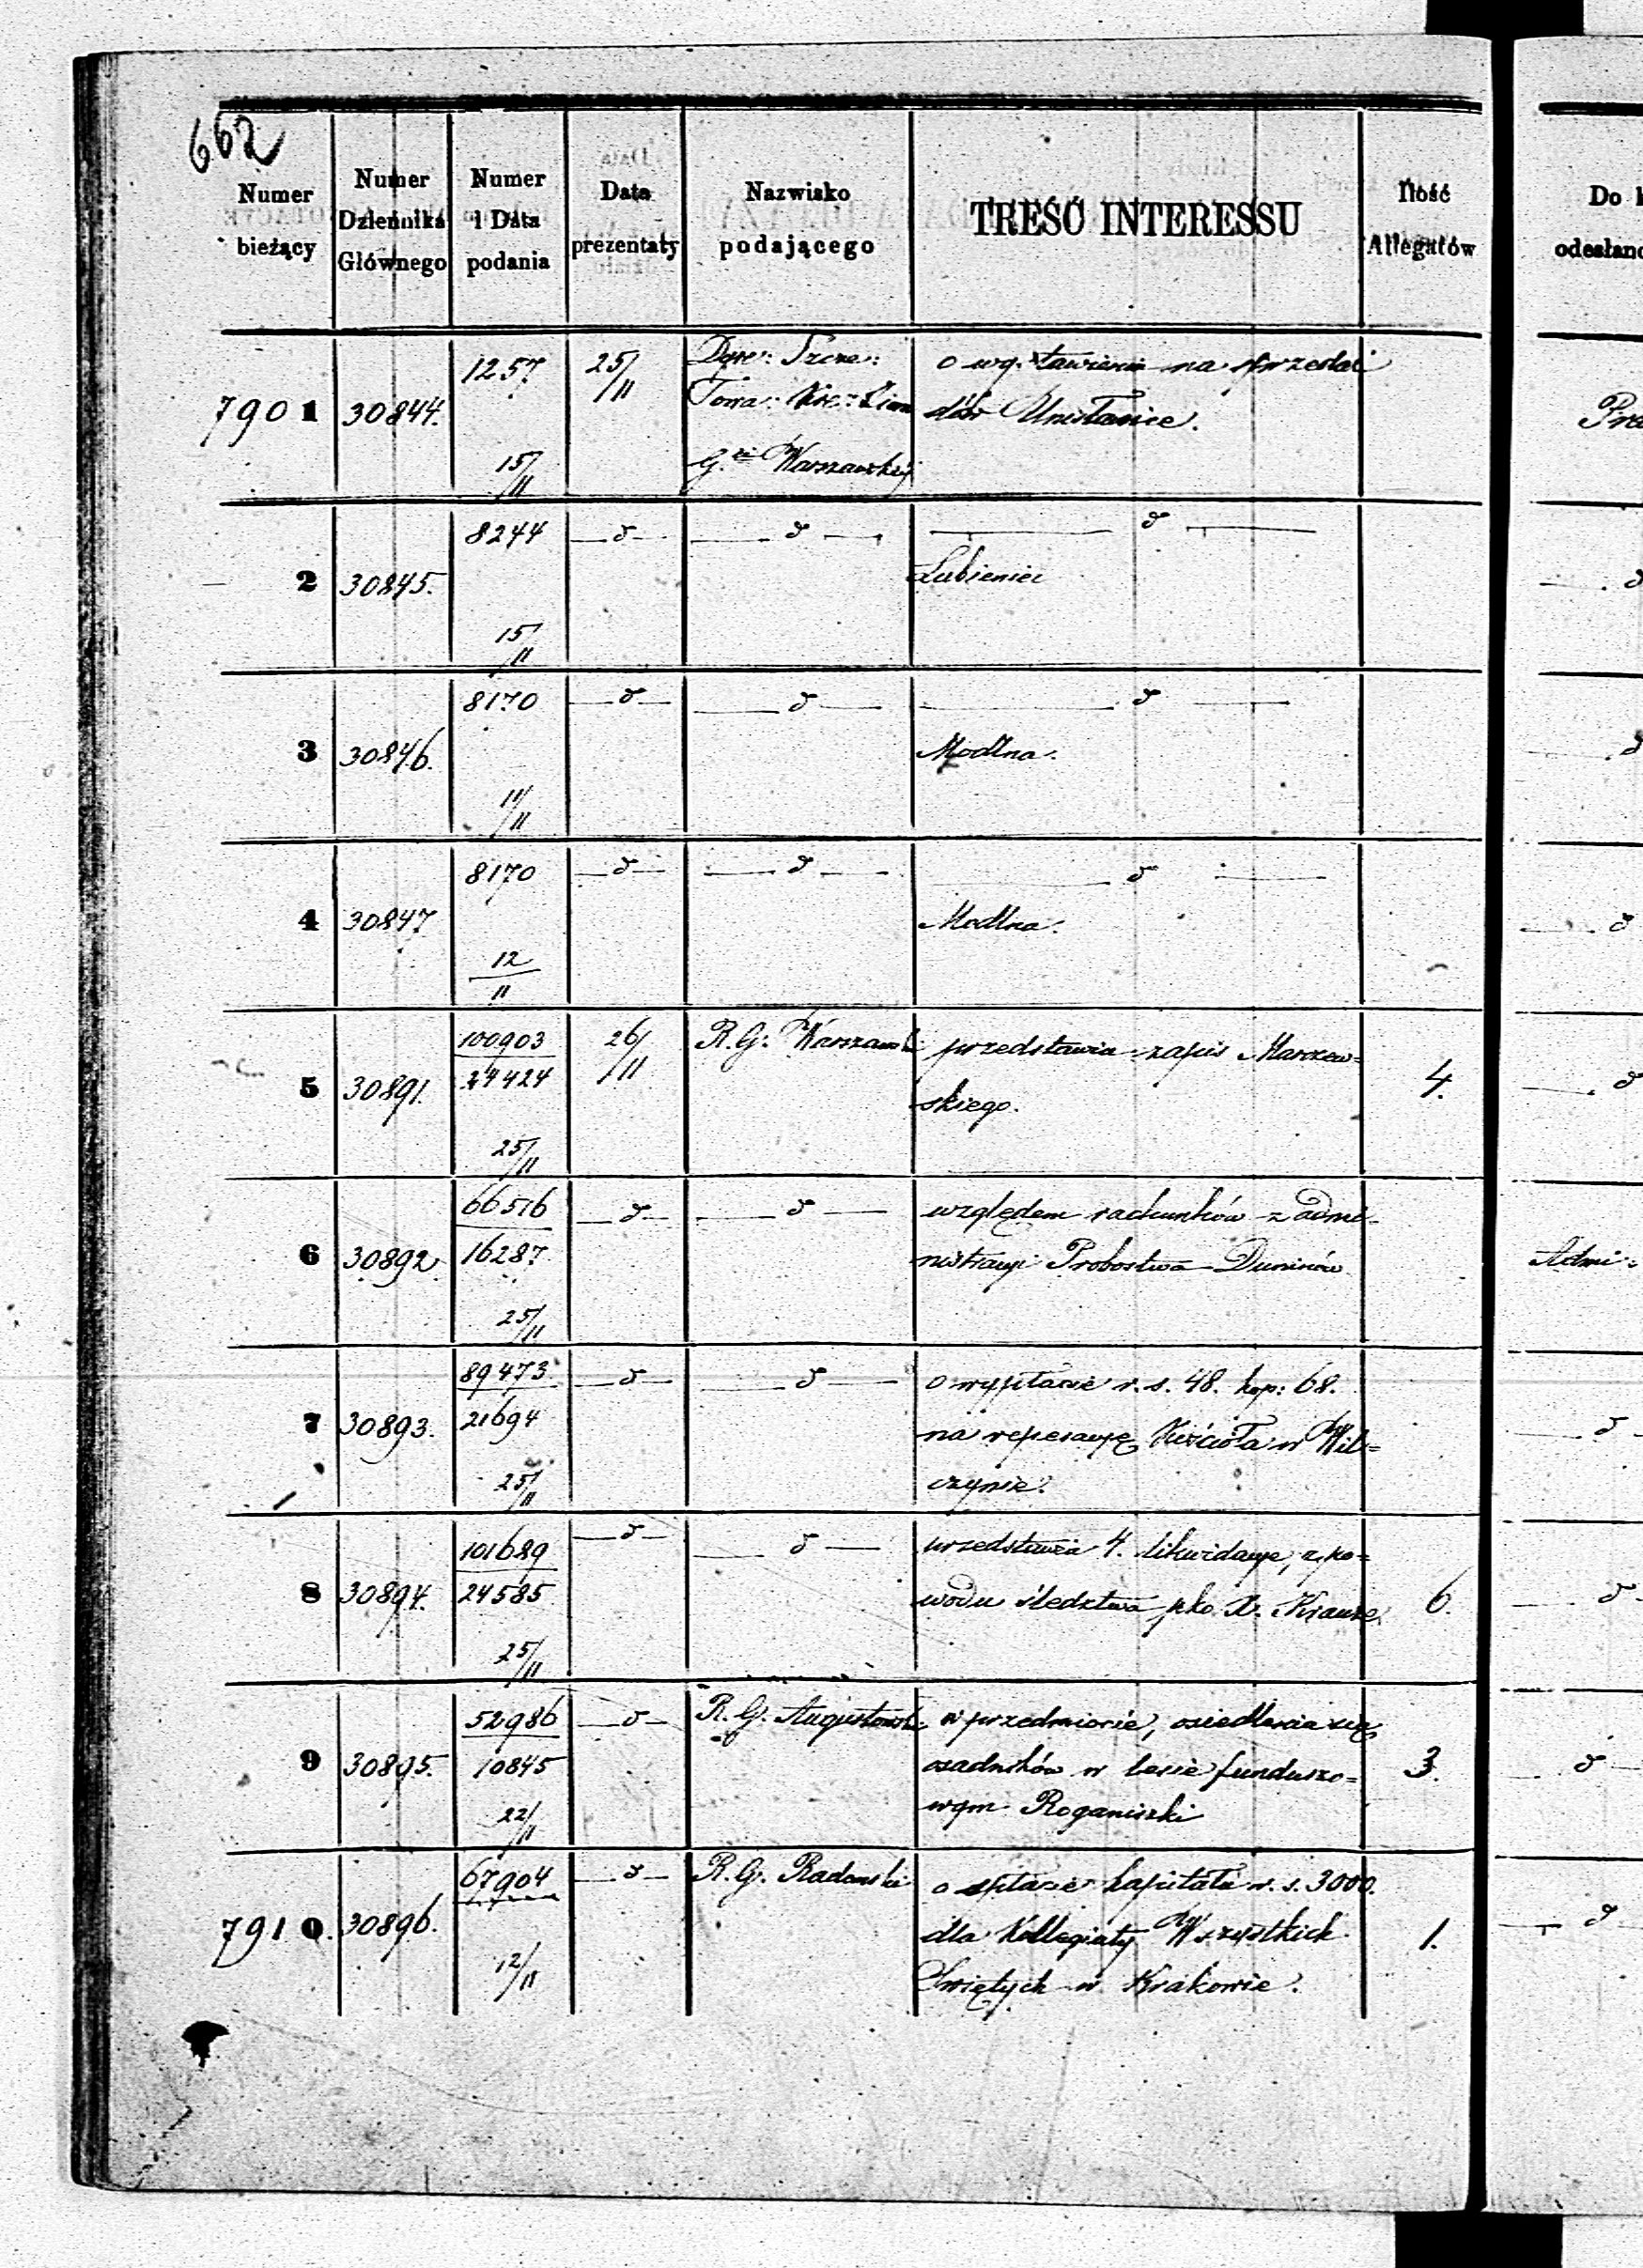 662
Numer bieżący
Numer Dziennika Głównego
Numer i Data podania
Data prezentaty
Nazwisko podającego
TREŚĆ INTERESSU
Ilość Allegatów
Do
odesłano
7901 30844. 1257 15/11 25/11 Dyre: Szcze: o wystawieniu na sprzedaż
Towa: Kre: Ziem dóbr Umisłanice.
G. Warszawskiej
2 30845. 8244 15/11 —d— —d— —d—
Lubieniec
3 30846. 8170 11/11 —d— —d— —d—
Modlna.
4 30847 8170 12/11 —d— —d— —d—
Modlna.
5 30891. 100903/24424 25/11 26/11 R. G. Warszaws przedstawia zapis Marxew= 4.
skiego.
6 30892 66516/16287 25/11 —d— —d— względem rachunków z admi- Admi:
nistracyi Probostwa Duninów
7 30893. 89473/21694 25/11 —d— —d— o wypłacie r. s. 48. kop: 68. d
na reperacyę Kościoła w Wil=
czynie.
8 30894. 101689/24585 25/11 —d— —d— przedstawia 4. likwidacye, z po= 6. d
wodu śledztwa pko X. Krauze
9 30895. 52986/10845 22/11 —d— R. G. Augustowski w przedmiocie, osiedlenia się 3. d
osadników w lesie funduszo=
wym Roganiszki
7910. 30896. 67904 12/11 —d— R. G. Radomski o spłacie kapitału r. s. 3000. 1. d
dla Kollegiaty Wszystkich
Świętych w Krakowie.